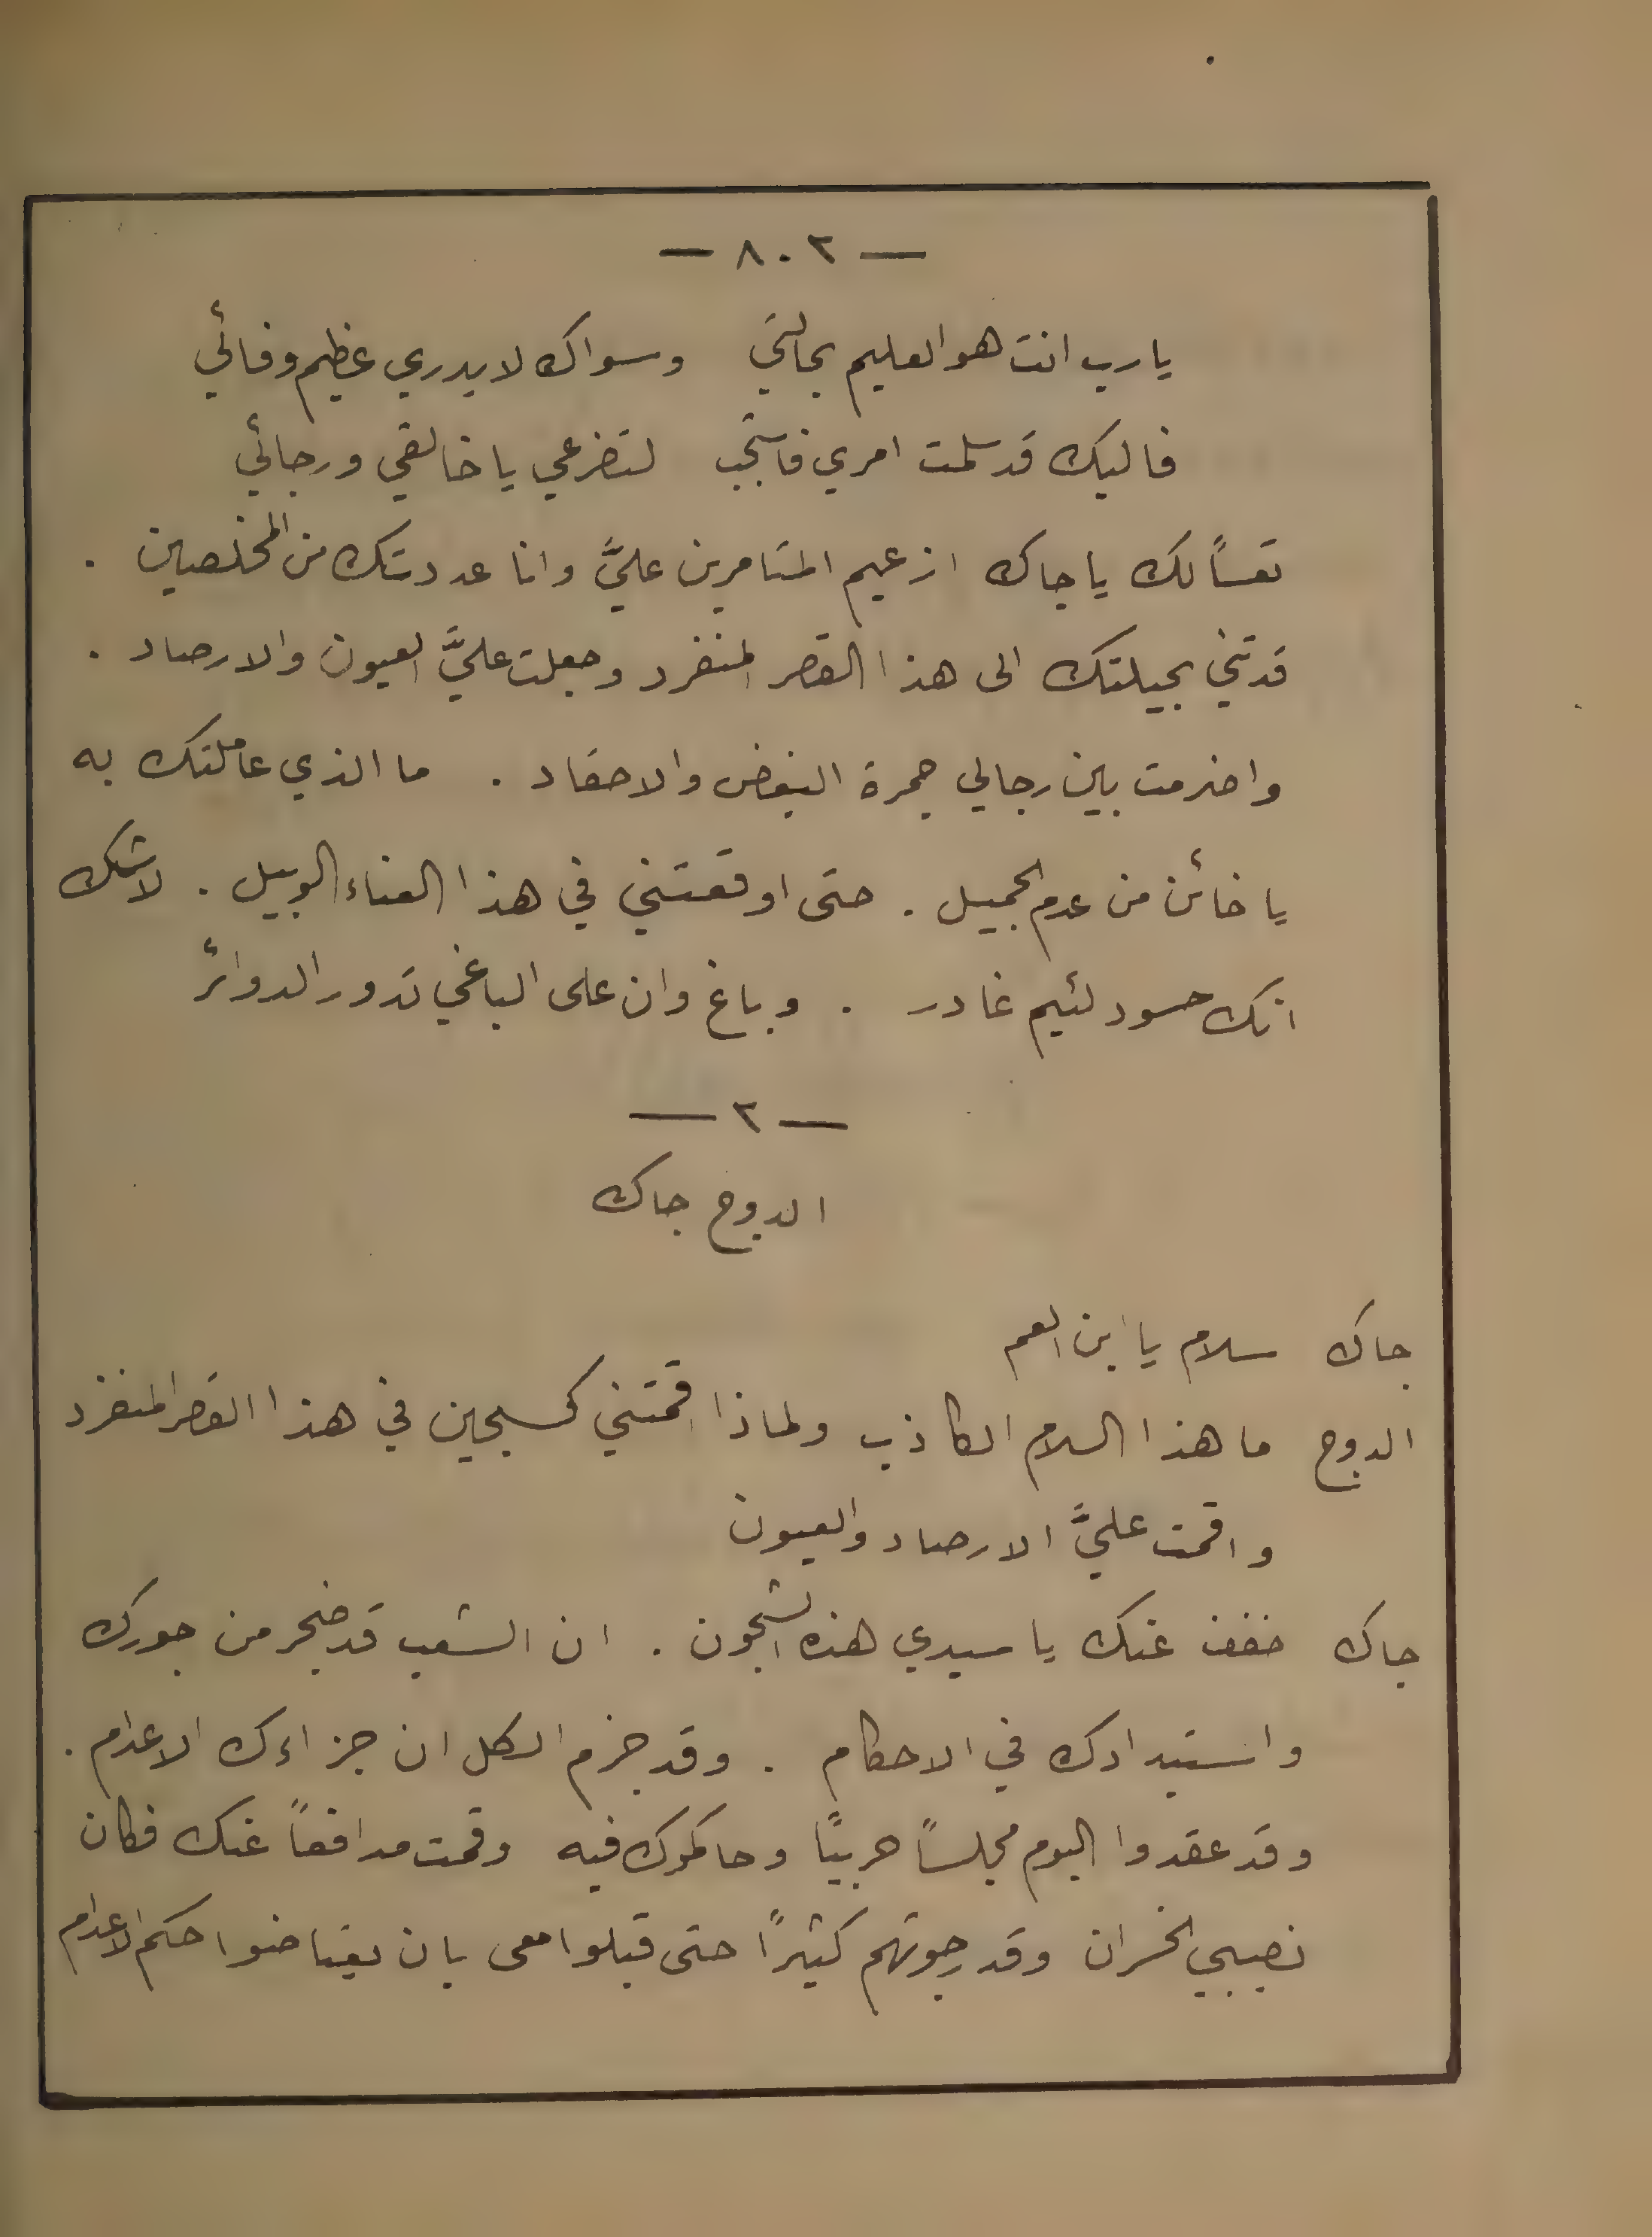 — ٨٠٢ —
يا رب انت هو العليم بحالتي وسواك لا يدري عظيم وفائي
فاليك قد سلمت امري فاستجب لتضرعي يا خالقي ورجائي
تعسًا لك يا جاك ازعيم المتامرين عليَّ وانا عددتك من المخلصين .
قدتني بحيلتك الى هذا القصر المنفرد وجعلت عليَّ العيون والارصاد .
واضرمت بين رجالي جمرة البغض والاحقاد . ما الذي عاملتك به
يا خائن من عدم الجميل . حتى اوقعتني في هذا العناء الوبيل . لا شك
انك حسود لئيم غادر . وباغ وان على الباغي تدور الدوائر
— ٢ —
الدوج جاك
جاك سلام يا ابن العم
الدوج ما هذا السلام الكاذب ولماذا اقمتني كسجين في هذا القصر المنفرد
واقمت عليَّ الارصاد والعيون
جاك خفف عنك يا سيدي هذه الشجون . ان الشعب قد ضجر من جورك
واستبدادك في الاحكام . وقد جزم الكل ان جزاءك الاعدام .
وقد عقدوا اليوم مجلسًا حربيًا وحاكموك فيه وقمت مدافعًا عنك فكان
نصيبي الخسران وقد رجوتهم كثيرًا حتى قبلوا معى بان يقتاضوا حكم الاعدام